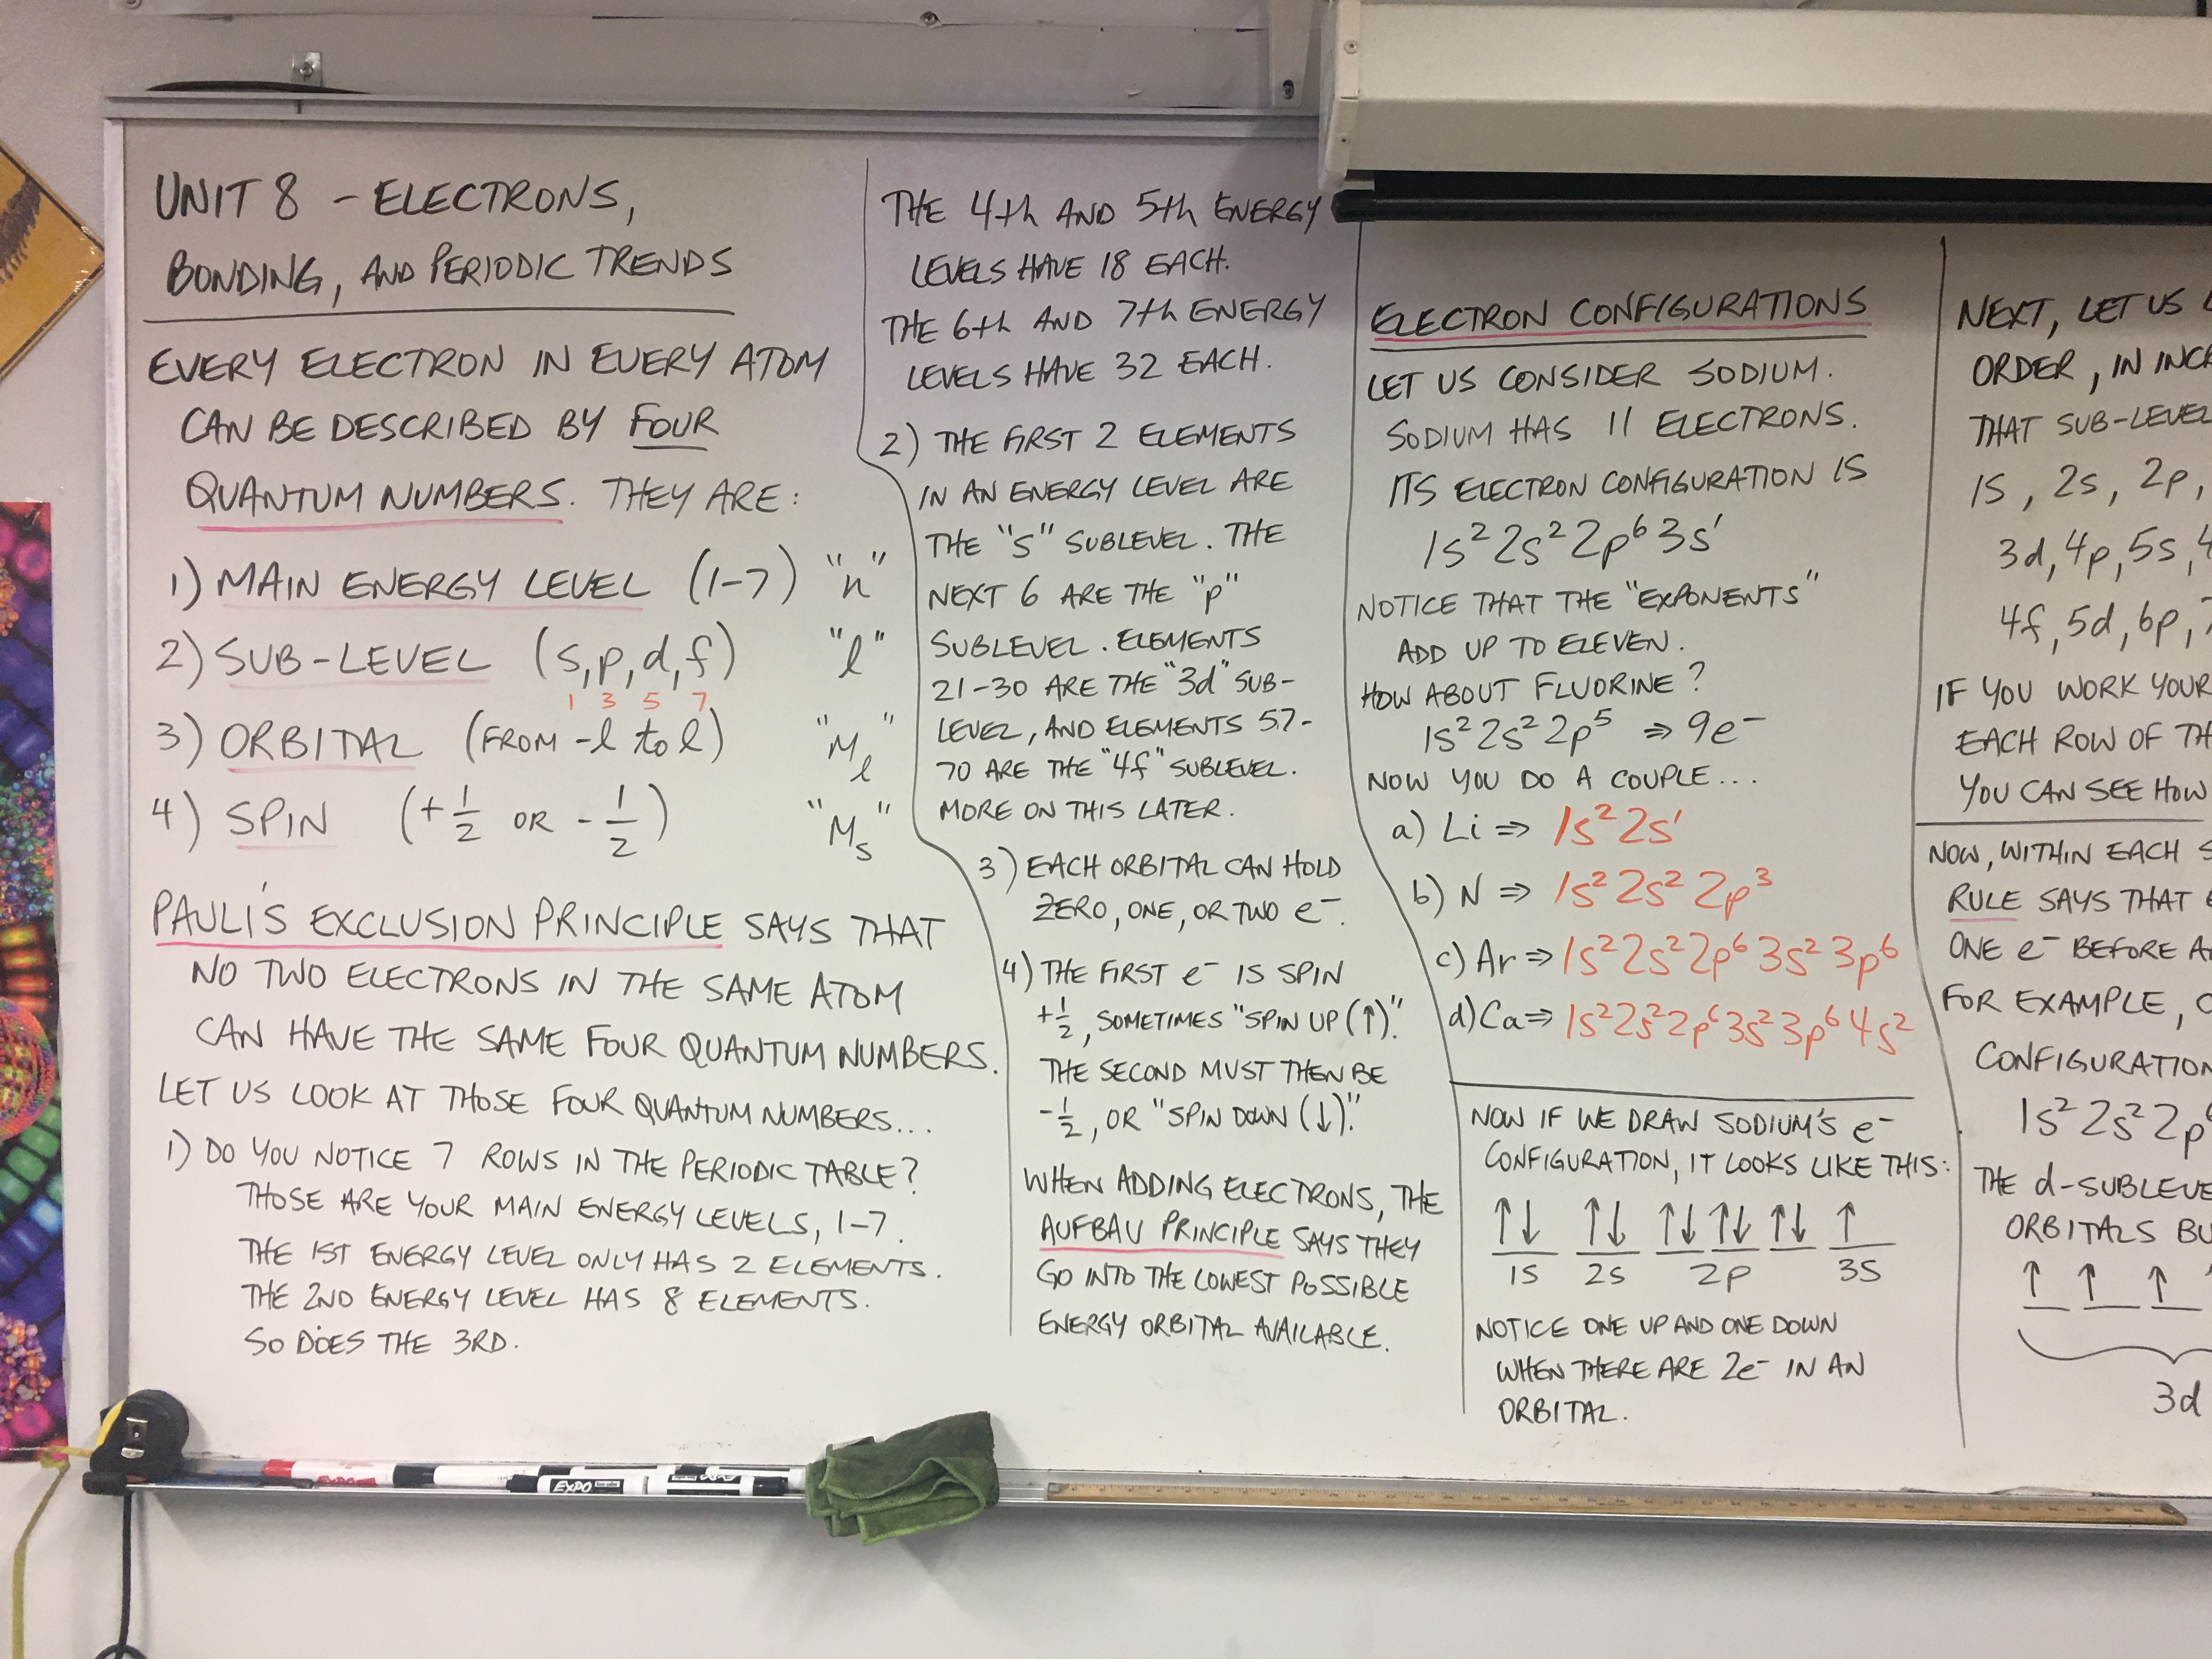 UNIT 8 - ELECTRONS,
BONDING, AND PERIODIC TRENDS
EVERY ELECTRON IN EVERY ATOM
CAN BE DESCRIBED BY FOUR
QUANTUM NUMBERS. THEY ARE:
1) MAIN ENERGY LEVEL (1-7) "n"
2) SUB-LEVEL (s,p,d,f) "l"
1 3 5 7
3) ORBITAL (FROM -l to l) "Mₗ"
4) SPIN (+1/2 OR -1/2) "Mₛ"
PAULI'S EXCLUSION PRINCIPLE SAYS THAT
NO TWO ELECTRONS IN THE SAME ATOM
CAN HAVE THE SAME FOUR QUANTUM NUMBERS.
LET US LOOK AT THOSE FOUR QUANTUM NUMBERS...
1) DO YOU NOTICE 7 ROWS IN THE PERIODIC TABLE?
THOSE ARE YOUR MAIN ENERGY LEVELS, 1-7.
THE 1ST ENERGY LEVEL ONLY HAS 2 ELEMENTS.
THE 2ND ENERGY LEVEL HAS 8 ELEMENTS.
SO DOES THE 3RD.
THE 4th AND 5th ENERGY
LEVELS HAVE 18 EACH.
THE 6th AND 7th ENERGY
LEVELS HAVE 32 EACH.
2) THE FIRST 2 ELEMENTS
IN AN ENERGY LEVEL ARE
THE "S" SUBLEVEL. THE
NEXT 6 ARE THE "p"
SUBLEVEL. ELEMENTS
21-30 ARE THE "3d" SUB-
LEVEL, AND ELEMENTS 57-
70 ARE THE "4f" SUBLEVEL.
MORE ON THIS LATER.
3) EACH ORBITAL CAN HOLD
ZERO, ONE, OR TWO e⁻.
4) THE FIRST e⁻ IS SPIN
+1/2, SOMETIMES "SPIN UP (↑)."
THE SECOND MUST THEN BE
-1/2, OR "SPIN DOWN (↓)."
WHEN ADDING ELECTRONS, THE
AUFBAU PRINCIPLE SAYS THEY
GO INTO THE LOWEST POSSIBLE
ENERGY ORBITAL AVAILABLE.
ELECTRON CONFIGURATIONS
LET US CONSIDER SODIUM.
SODIUM HAS 11 ELECTRONS.
ITS ELECTRON CONFIGURATION IS
1s² 2s² 2p⁶ 3s¹
NOTICE THAT THE "EXPONENTS"
ADD UP TO ELEVEN.
HOW ABOUT FLUORINE?
1s² 2s² 2p⁵ ⇒ 9e⁻
NOW YOU DO A COUPLE...
a) Li ⇒ 1s² 2s¹
b) N ⇒ 1s² 2s² 2p³
c) Ar ⇒ 1s² 2s² 2p⁶ 3s² 3p⁶
d) Ca ⇒ 1s² 2s² 2p⁶ 3s² 3p⁶ 4s²
NOW IF WE DRAW SODIUM'S e⁻
CONFIGURATION, IT LOOKS LIKE THIS:
↑↓ ↑↓ ↑↓ ↑↓ ↑↓ ↑
1s 2s 2p 3s
NOTICE ONE UP AND ONE DOWN
WHEN THERE ARE 2e⁻ IN AN
ORBITAL.
NEXT, LET US
ORDER, IN
THAT SUB-LEVEL
1s, 2s, 2p,
3d, 4p, 5s, 4
4f, 5d, 6p, 7
IF YOU WORK YOUR
EACH ROW OF
YOU CAN SEE HOW
NOW, WITHIN EACH S
RULE SAYS THAT
ONE e⁻ BEFORE
FOR EXAMPLE,
CONFIGURATION
1s² 2s² 2p⁶
THE d-SUBLEVE
ORBITALS BU
↑ ↑ ↑
3d
EXPO